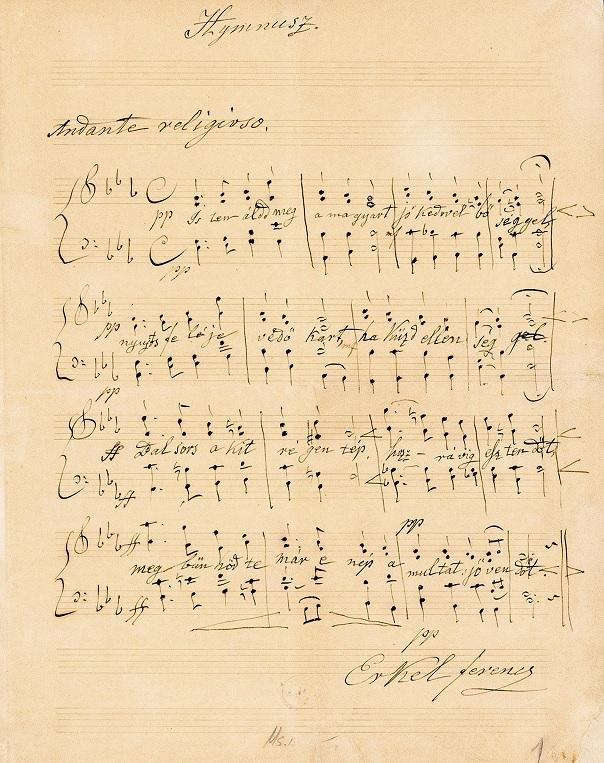 Hymnusz.
Andante religioso.
pp Is ten áldd meg a magyart jó kedvvel bő séggel
mf
pp
pp nyujts fe léje védő kart, ha küzd ellen ség gel.
mf
pp
ff Bal sors a kit ré gen tép, hoz - rá víg esz ten dőt
ff
ff pp
meg bűn hőd te már e nép a multat jöven dőt
ff
pp
Erkel ferencz
Ms. 1